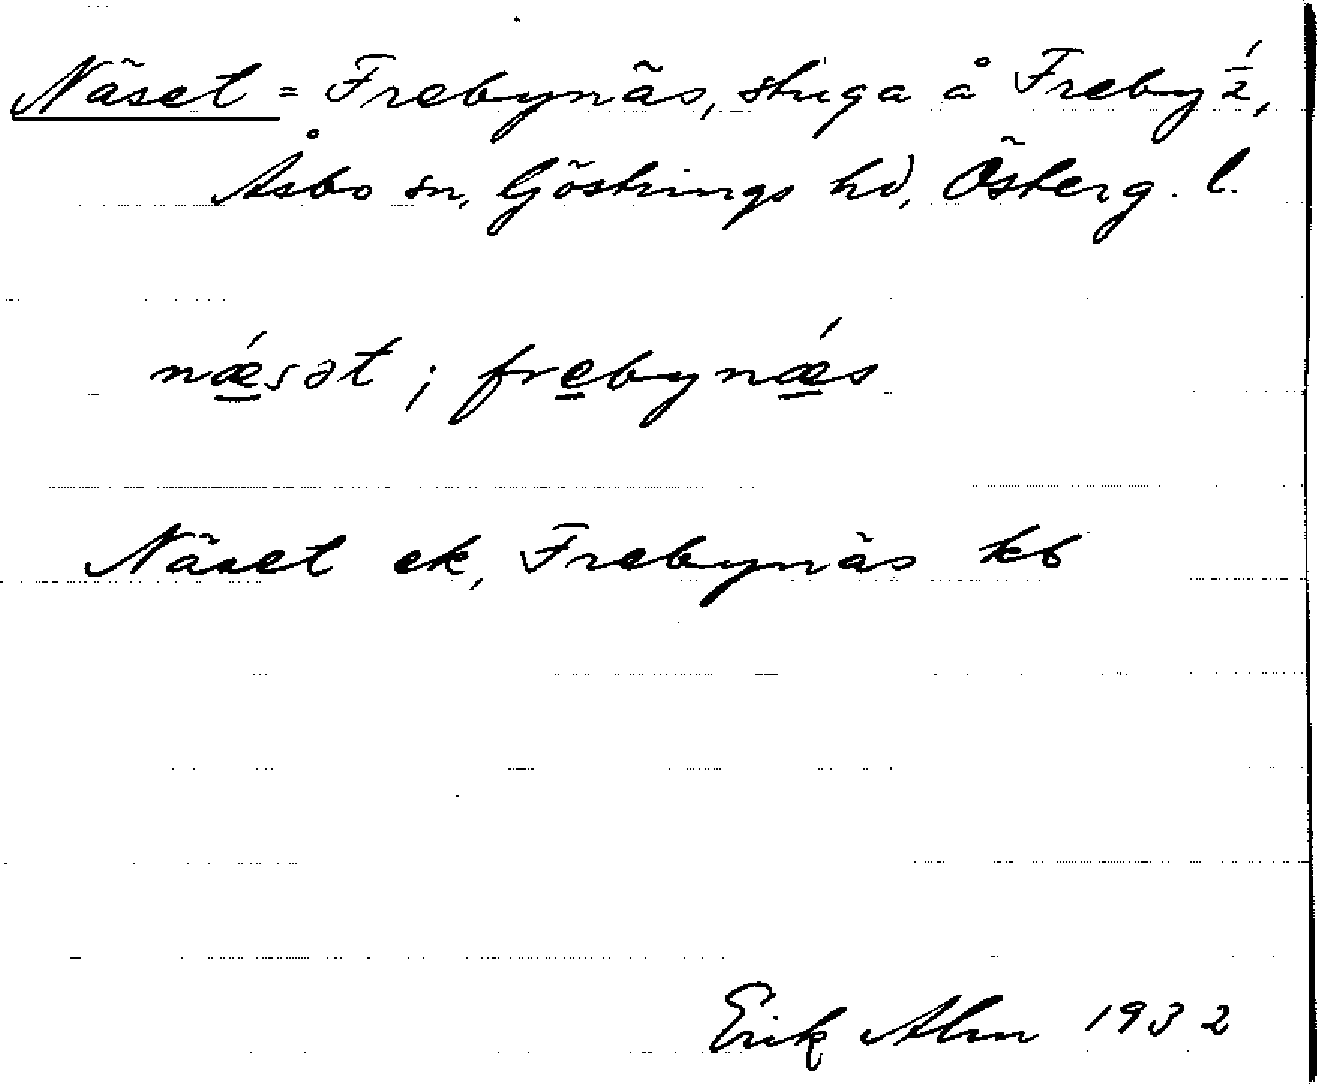 Näset = Frebynäs, stuga å Freby ½,
Åsbo sn, Göstrings hd, Österg. l.
nǽ̲sət ; fre̲bynǽ̲s
Näset ek, Frebynäs kb
Erik Alm 1932